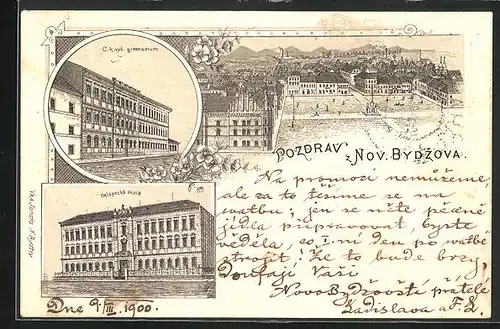 C. k. vyš. gymnasium
POZDRAV
z NOV. BYDŽOVA.
Na promoci nemůžeme,
ale za to těšíme se na
svatbu; jen se učte pěkně
jídla připravovat byste
věděla, co i ní den po svatbě
strojit! Že to bude brzy
doufají Vaši
Novo Bydžovští přátelé
Ladislava a F. Z.
Chlapecká škola
Dne 9/III. 1900.